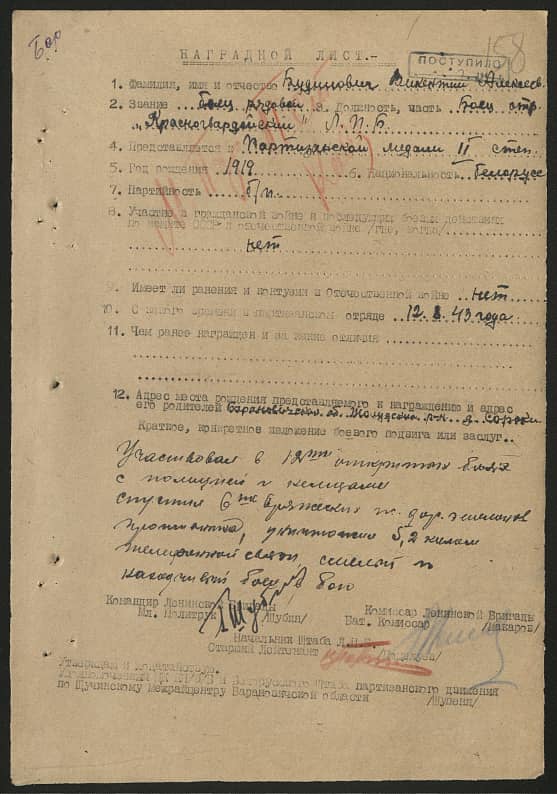 Бар
158
ПОСТУПИЛО
НАГРАДНОЙ ЛИСТ.-
1. Фамилия, имя и отчество Будинович Викентий Алексеев.
2. Звание Боец рядовой 3. Должность, часть Боец отр.
"Красногвардейский" Л.П.Б.
4. Представляется к Партизанской медали II степ.
5. Год рождения 1919 6. Национальность Белорусс
7. Партийность б/п.
8. Участие в гражданской войне и последующих боевых действиях
по защите СССР и отечественной войне /где, когда/
нет
9. Имеет ли ранения и контузии в Отечественной войне нет
10. С какого времени в партизанском отряде 12.8.43 года
11. Чем ранее награжден и за какие отличия
12. Адрес места рождения представляемого к награждению и адрес
его родителей Барановичская об. р-н д.
Краткое, конкретное изложение боевого подвига или заслуг..
Участвовал в 12ти открытых боях
с полицией и немцами
спустил 6 вражеских ж. дор. эшелонов
уничтожил 5,2 килом
телефонной связи смелый и
находчивый боец в бою
Командир Ленинской Бригады
Комиссар Ленинской Бригады
Мл. Политрук /Шубин/
Бат. Комиссар /Макаров/
Начальник Штаба Л.П.Б.
Старший Лейтенант
Утверждаю и ходатайствую.
Уполномоченный ЦК КП/б/Б и Белорусского Штаба партизанского движения
по Щучинскому межрайцентру Барановичской области /Шупеня/